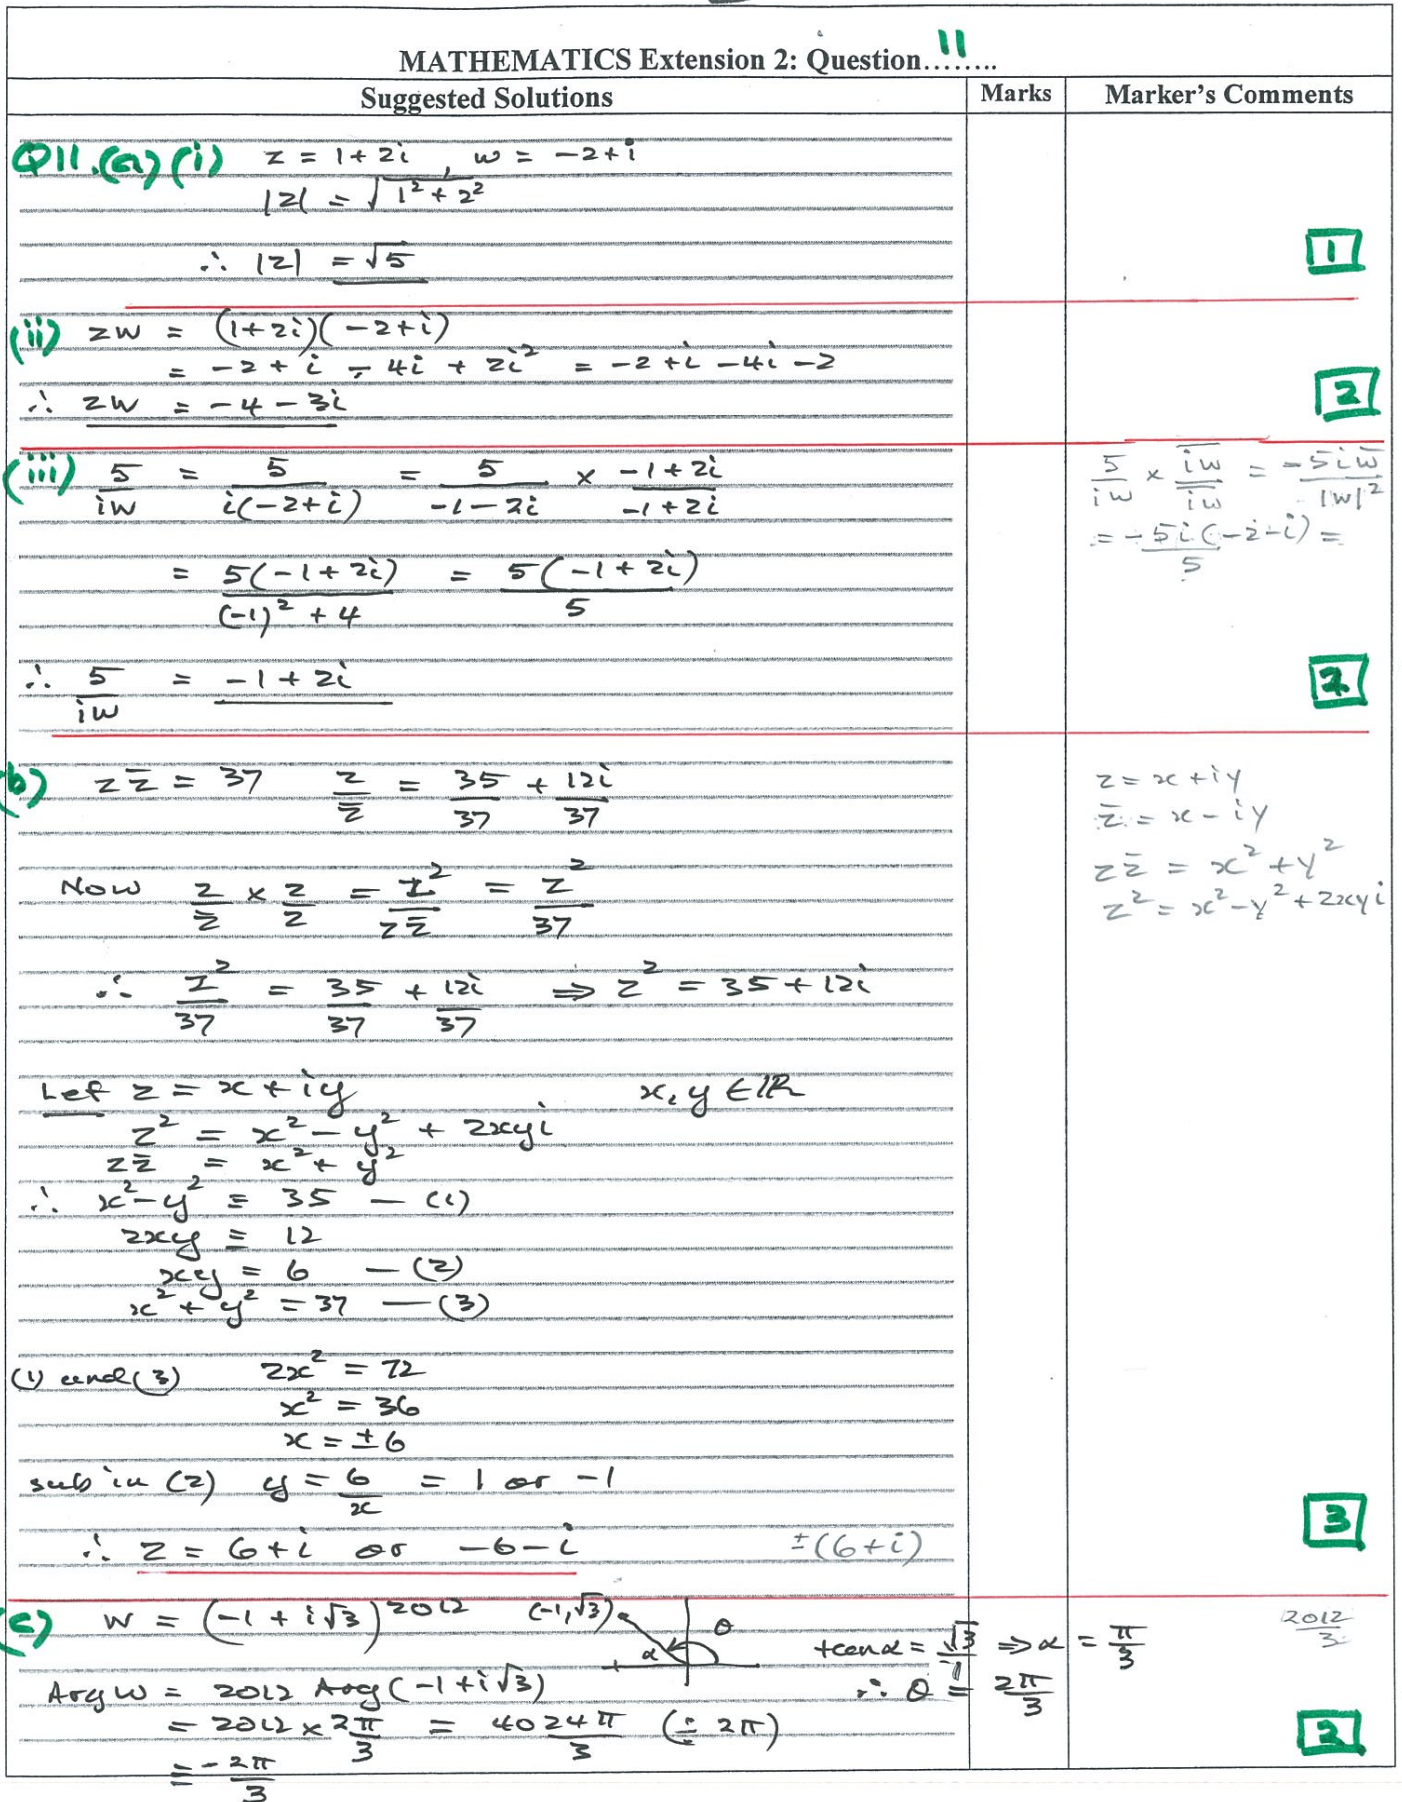 MATHEMATICS Extension 2: Question...11.....
Suggested Solutions
Marks
Marker's Comments
Q11.(a)(i) z = 1+2i , w = -2+i
|z| = √(1² + 2²)
∴ |z| = √5
1
(ii) zw = (1+2i)(-2+i)
= -2 + i - 4i + 2i² = -2+i -4i -2
∴ zw = -4-3i
2
(iii) 5/iw = 5/i(-2+i) = 5/-1-2i × -1+2i/-1+2i
= 5(-1+2i)/(-1)²+4 = 5(-1+2i)/5
∴ 5/iw = -1+2i
5/iw × i̅w̅/i̅w̅ = -5iw̅/|w|²
= -5i(-2-i)/5 =
2
(b) zz̅ = 37 z/z̅ = 35/37 + 12i/37
Now z/z̅ × z/z = z²/zz̅ = z²/37
∴ z²/37 = 35/37 + 12i/37 ⇒ z² = 35+12i
z = x+iy
z̅ = x-iy
zz̅ = x²+y²
z² = x²-y²+2xyi
Let z = x+iy x, y ∈ ℝ
z² = x²-y² + 2xyi
zz̅ = x²+y²
∴ x²-y² = 35 — (1)
2xy = 12
xy = 6 — (2)
x²+y² = 37 — (3)
(1) and (3) 2x² = 72
x² = 36
x = ±6
sub in (2) y = 6/x = 1 or -1
∴ z = 6+i or -6-i ±(6+i)
3
(c) w = (-1+i√3)²⁰¹² (-1,√3) θ α tan α = √3/1 ⇒ α = π/3 2012/3
∴ θ = 2π/3
Arg w = 2012 Arg(-1+i√3)
= 2012 × 2π/3 = 4024π/3 (± 2π)
≡ -2π/3
2